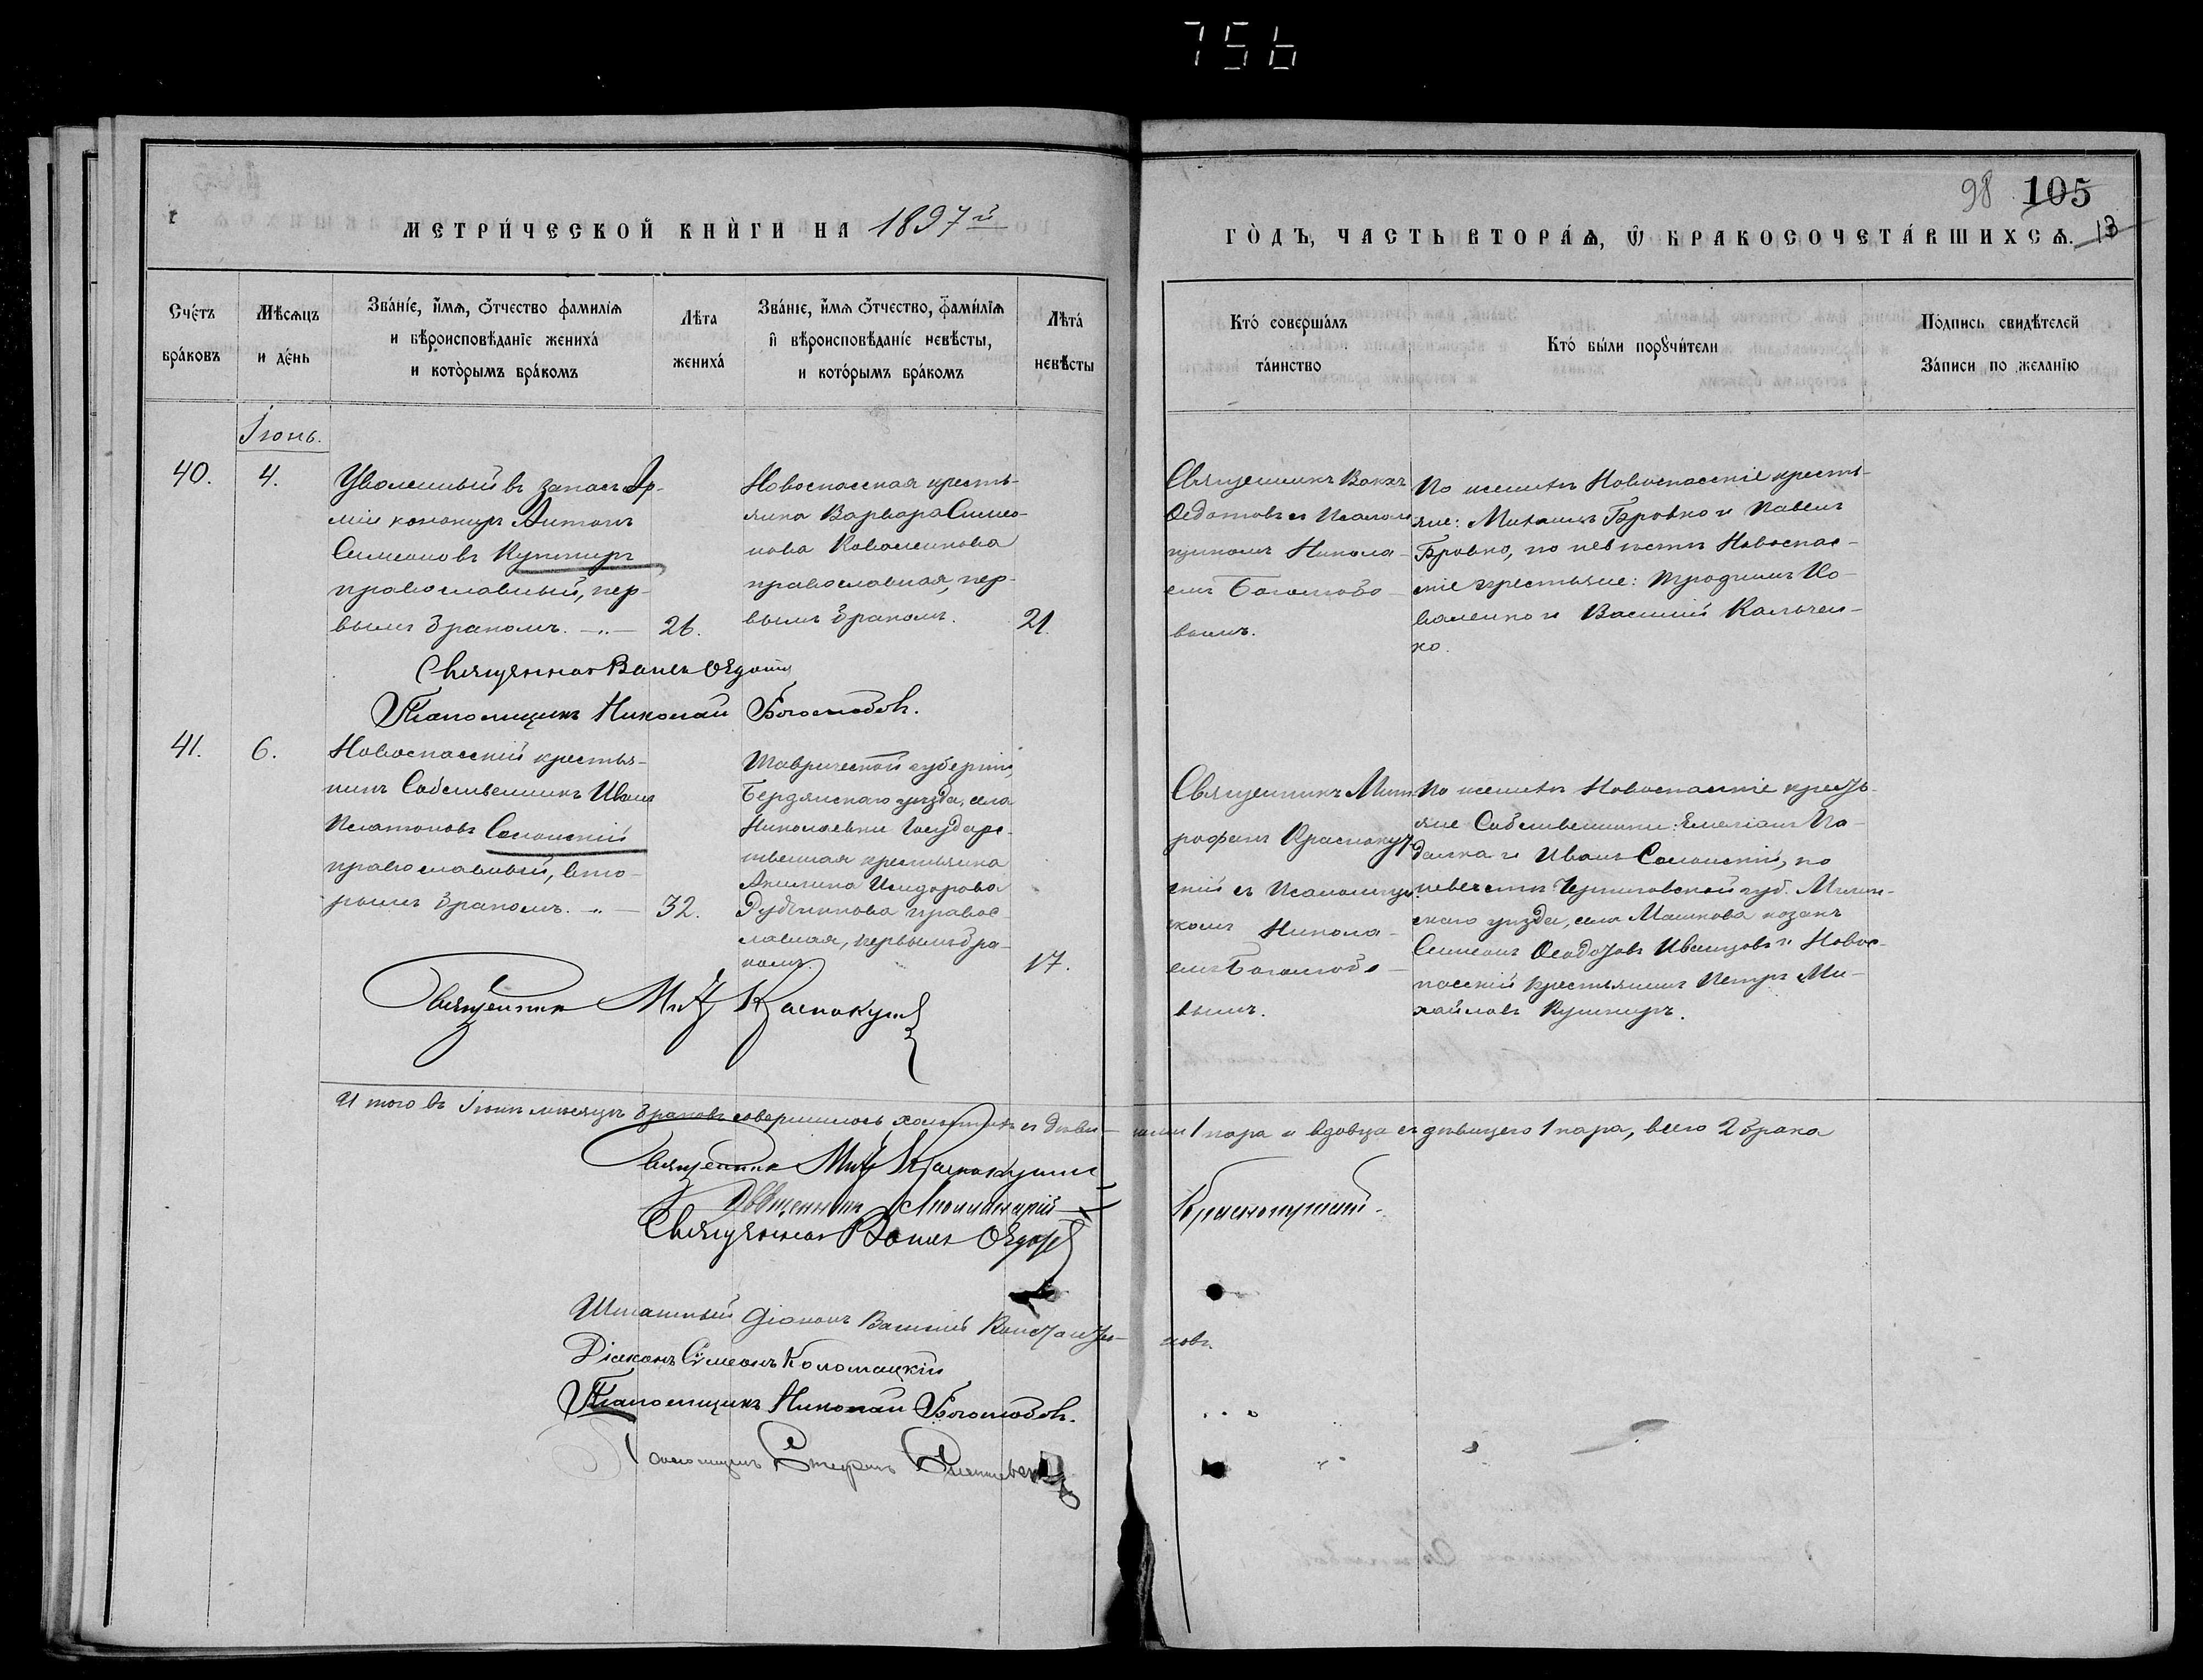 756
МЕТРИ́ЧЕСКОЙ КНИ́ГИ НА 1897й
98 105
ГО́ДЪ, ЧАСТЬ ВТОРА́Ѧ, Ѿ БРАКОСОЧЕТА́ВШИХСѦ. 13
Сче́тъ бра́ковъ
Мѣсѧцъ и де́нь
Зва́нїе, и́мѧ, ѻ́тчество фамилїѧ
и вѣроисповѣданїе жениха̀
и кото̀рымъ бра́комъ
Лѣта жениха́
Зва́нїе, и́мѧ ѻ́тчество, фами́лїѧ
и҆ вѣроисповѣданїе невѣсты,
и кото́рымъ бра́комъ
Лѣта́ невѣсты
Кто́ соверша́лъ
та́инство
Кто́ бы́ли порꙋчи́тели
По́дпись свидѣтелей
За́писи по желанїю
Іюнь.
40.
4.
Уволенный въ запасъ Ар-
міи канониръ Антонъ
Симеоновъ Кушниръ
православный, пер-
вымъ бракомъ. —"—
26.
Новоспасская кресть-
янка Варвара Симео-
нова Коваленкова
православная, пер-
вымъ бракомъ.
21.
Священникъ Вакхъ
Ѳедотовъ съ Псалом-
щикомъ Никола-
емъ Боголюбо-
вымъ.
По женихѣ Новоспасскіе кресть-
яне: Михаилъ Бровко и Павелъ
Бровко, по невѣстѣ Новоспас-
скіе крестьяне: Трофимъ Ко-
валенко и Василій Кальчен-
ко.
Священникъ Вакхъ Ѳедотовъ
Псаломщикъ Николай Боголюбовъ.
41.
6.
Новоспасскій крестья-
нинъ Собственникъ Иванъ
Платоновъ Солонскій
православный, вто-
рымъ бракомъ. —"—
32.
Таврической губерніи,
Бердянскаго уѣзда, села
Николаевки Государс-
твенная крестьянка
Акилина Исидорова
Дубинкова правос-
лавная, первымъ бра-
комъ.
17.
Священникъ Мит-
рофанъ Краснокут-
скій съ Псаломщи-
комъ Никола-
емъ Боголюбо-
вымъ.
По женихѣ Новоспасскіе кресть-
яне Собственники: Емеліанъ По-
далка и Иванъ Солонскій, по
невѣстѣ Черниговской губ. Мглин-
скаго уѣзда, села Машкова козакъ
Симеонъ Ѳеодотовъ Иванцовъ и Новос-
пасскій крестьянинъ Петръ Ми-
хайловъ Кушниръ.
Священникъ Мит. Краснокутскій
Итого въ Іюнѣ мѣсяцѣ браковъ совершилось холостыхъ съ дѣви-цами 1 пара и вдовца съ дѣвицею 1 пара, всего 2 брака
Священникъ Мит. Краснокутскій
Священникъ Аполлинарій Краснокутскій.
Священникъ Вакхъ Ѳедотовъ
Штатный діаконъ Василій Константи-новъ.
Діаконъ Сѵмеонъ Коломацкій
Псаломщикъ Николай Боголюбовъ.
Псаломщикъ Стефанъ